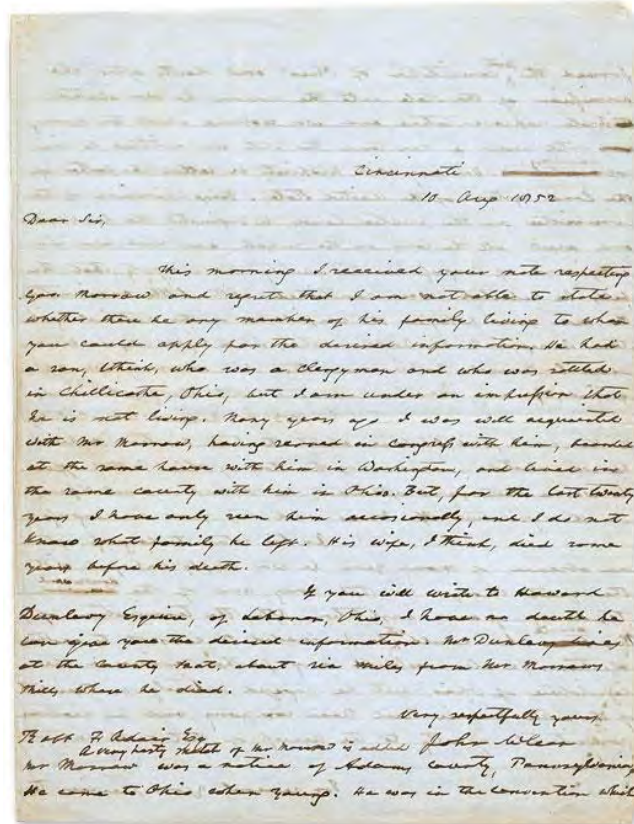 Cincinnati
10 Aug 1852
Dear Sir,
This morning I received your note respecting
Gov Morrow and regret that I am not able to state
whether there be any member of his family living to whom
you could apply for the desired information. He had
a son, I think, who was a clergyman and who was settled
in Chillicothe, Ohio, but I am under an impression that
he is not living. Many years ago I was well acquainted
with Mr Morrow, having served in Congress with him, boarded
at the same house with him in Washington, and lived in
the same county with him in Ohio. But, for the last twenty
years I have only seen him occasionally, and I do not
know what family he left. His wife, I think, died some
years before his death.
If you will write to Howard
Dunlevy Esquire, of Lebanon, Ohio, I have no doubt he
can give you the desired information. Mr Dunlevy lives
at the County seat, about six miles from Mr Morrows
Mills where he died.
Very respectfully yours
F Adair Esq
A very hasty sketch of Mr Morrow is added John McLean
Mr Morrow was a native of Adams County, Pennsylvania
He came to Ohio when young. He was in the convention which